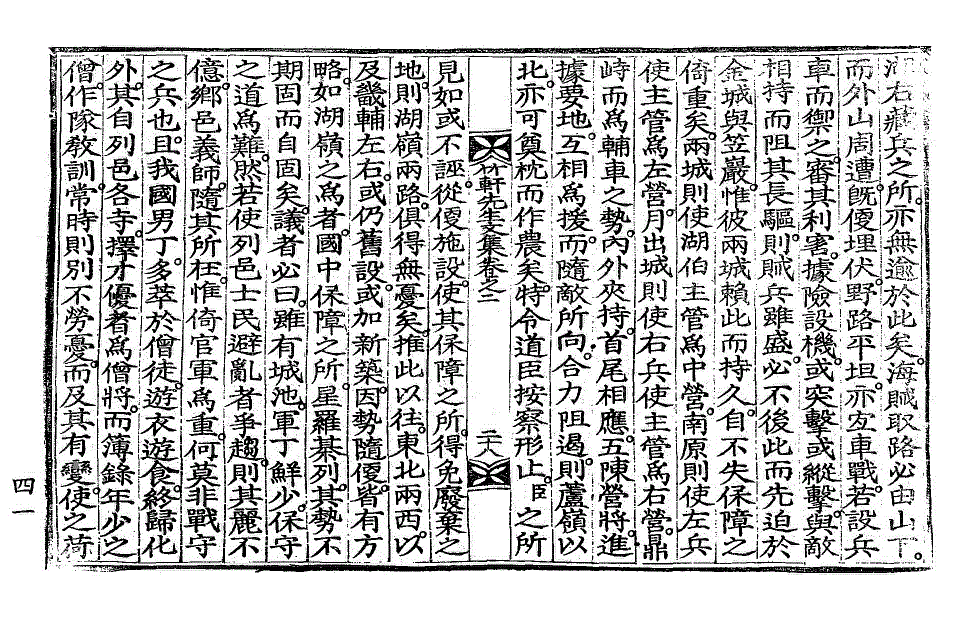 湖右藏兵之所。亦無逾於此矣。海賊取路必由山下。
而外山周遭。旣便埋伏。野路平坦。亦宜車戰。若設兵
車而禦之。審其利害。據險設機。或突擊或縱擊。與敵
相持而阻其長驅。則賊兵雖盛。必不後此而先迫於
金城與笠巖。惟彼兩城賴此而持久。自不失保障之
倚重矣。兩城則使湖伯主管爲中營。南原則使左兵
使主管爲左營。月出城則使右兵使主管爲右營。鼎
峙而爲輔車之勢。內外夾持。首尾相應。五陳營將。進
據要地。互相爲援。而隨敵所向。合力阻遏。則蘆嶺以
北。亦可奠枕而作農矣。特令道臣按察形止。臣之所
竹軒先生文集卷之二
二十八
見如或不誣。從便施設。使其保障之所。得免廢棄之
地。則湖嶺兩路。俱得無憂矣。推此以往。東北兩西。以
及畿輔左右。或仍舊設。或加新築。因勢隨便。皆有方
略。如湖嶺之爲者。國中保障之所。星羅棊列。其勢不
期固而自固矣。議者必曰。雖有城池。軍丁鮮少。保守
之道爲難。然若使列邑士民避亂者爭趨。則其麗不
億。鄕邑義師。隨其所在。惟倚官軍爲重。何莫非戰守
之兵也。且我國男丁。多萃於僧徒。遊衣遊食。終歸化
外。其自列邑各寺。擇才優者爲僧將。而簿錄年少之
僧。作隊敎訓。常時則別不勞憂。而及其有變。使之荷
四一